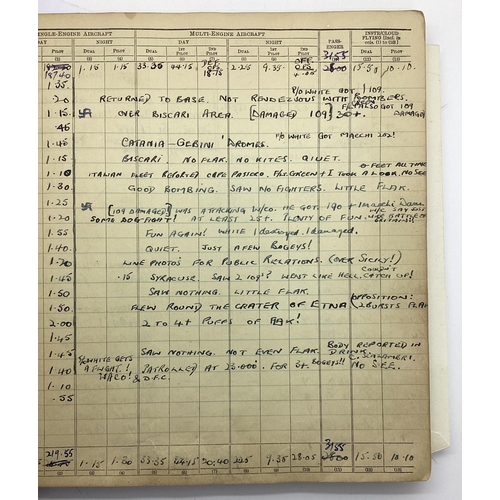 NGLE-ENGINE AIRCRAFT MULTI-ENGINE AIRCRAFT PASS-ENGER INSTR/CLOUD FLYING [Incl. in cols. (1) to (10)]
DAY NIGHT DAY NIGHT
PILOT DUAL PILOT DUAL 1ST PILOT 2ND PILOT DUAL 1ST PILOT 2ND PILOT DUAL PILOT
(2) (3) (4) (5) (6) (7) (8) (9) (10) (11) (12) (13)
187.40 1.15 1.15 33.35 44.15 18.15 2.25 9.35 3155 15.50 10.10
1.35 P/O WHITE GOT 1 109.
.20 RETURNED TO BASE. NOT RENDEZVOUS WITH BOMBERS.
1.15 OVER BISCARI AREA. [DAMAGED 109] 30+. ALSO GOT 109 DAMAGED
.45 P/O WHITE GOT MACCHI 202!
1.45 CATANIA-GEBINI 'DROMES.
1.15 BISCARI NO FLAK. NO KITES. QUIET. 0 FEET ALL TIME
1.10 ITALIAN FLEET REPORTED CAPE PASSICO. F/LT. GREEN + I TOOK A LOOK. NO SEE
1.30 GOOD BOMBING. SAW NO FIGHTERS. LITTLE FLAK.
1.25 [109 DAMAGED] WAS ATTACKING W/CO. HE GOT 190 + 1 MACCHI DAM.
1.20 SOME DOGFIGHT! AT LEAST 25+. PLENTY OF FUN. W/C SAY DID SEE BATTLE OF BRITAIN!!
1.55 FUN AGAIN! WHITE 1 destroyed, 1 damaged.
1.40 QUIET. JUST A FEW BOGEYS!
1.20 LINE PHOTOS FOR PUBLIC RELATIONS. (OVER SICILY!)
1.45 .15 SYRACUSE. SAW 2 109s? WENT LIKE HELL. COULDN'T CATCH UP!
1.50 SAW NOTHING. LITTLE FLAK.
1.50 FLEW ROUND THE CRATER OF ETNA (OPPOSITION: 2 BURSTS FLAK
2.00 2 TO 4+ PUFFS OF AAK!
1.45
1.45 SAW NOTHING. NOT EVEN FLAK. BODY REPORTED IN DRINK
1.40 P/O WHITE GETS A F/LGHT.! WACO! & D.F.C. PATROLLED AT 23.000. FOR 3+ BOGEYS!! NO SEE.
1.10
.55
219.55 1.15 1.30 33.35 44.15 20.40 2.25 9.35 28.05 3155 15.50 10.10
(2) (3) (4) (5) (6) (7) (8) (9) (10) (11) (12) (13)